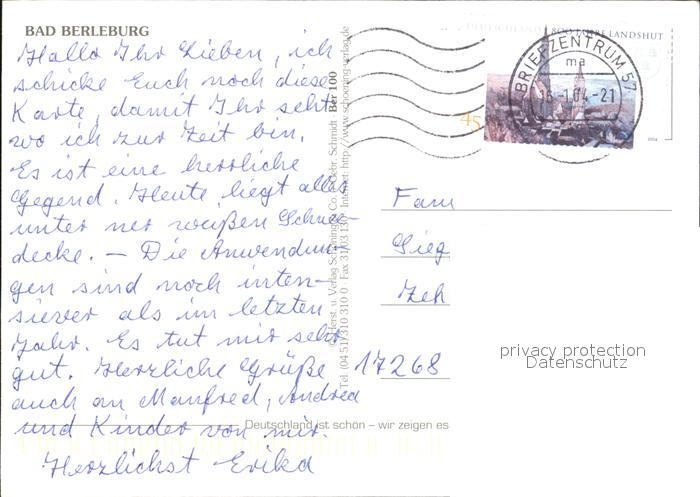 BAD BERLEBURG
Hallo Ihr Lieben, ich
schicke Euch noch diese
Karte, damit Ihr seht
wo ich zur Zeit bin.
Es ist eine herrliche
Gegend. Heute liegt alles
unter ner weißen Schnee-
decke. – Die Anwendun-
gen sind noch inten-
siever als im letzten
Jahr. Es tut mir sehr
gut. Herzliche Grüße
auch an Manfred, Andrea
und Kinder von mir.
Herzlichst Erika
Deutschland ist schön – wir zeigen es
Schmidt · Ber 100
Tel. (04 51) 310 310 0 · Fax 31 03 130 · Internet: http://www.schoening-verlag.de
DEUTSCHLAND 800 JAHRE LANDSHUT
45
BRIEFZENTRUM 57
ma
-1.04-21
Fam
Sieg
Zeh
17268
privacy protection
Datenschutz